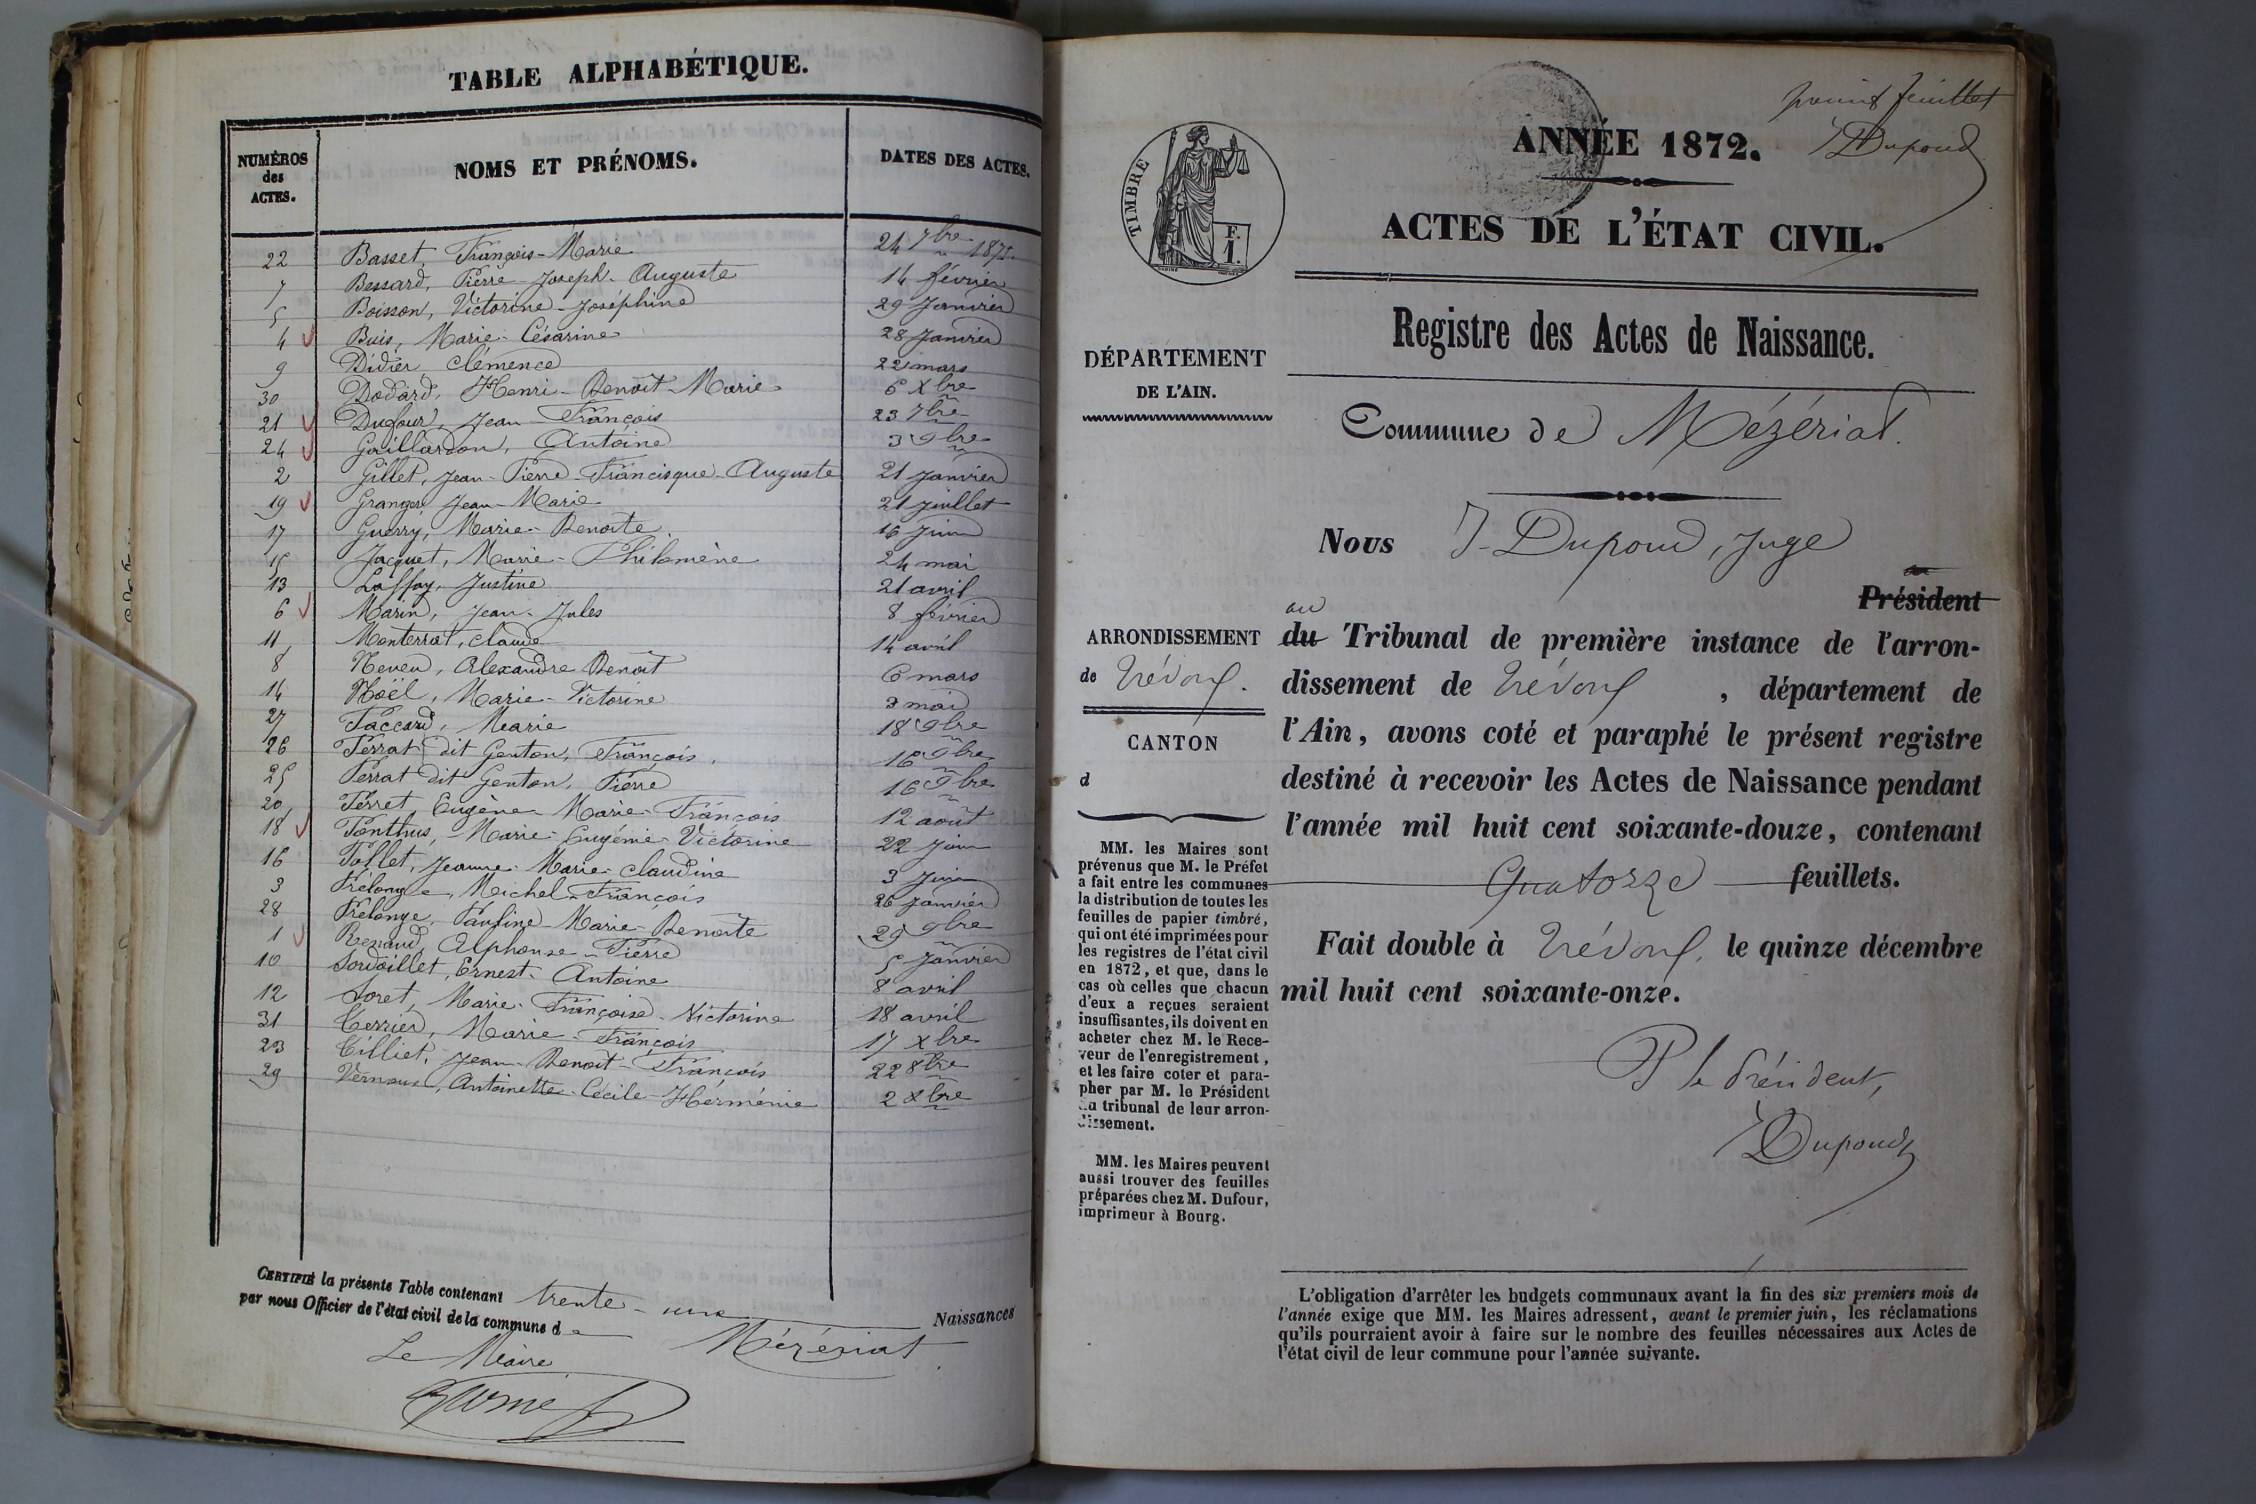 TABLE ALPHABÉTIQUE.
NUMÉROS des ACTES.
NOMS ET PRÉNOMS.
DATES DES ACTES.
22 Basset, François-Marie 24 7bre 1871.
7 Bessard, Pierre-Joseph-Auguste 14 février
5 Boisson, Victorine-Joséphine 29 Janvier
4 Buis, Marie-Césarine 28 Janvier
9 Didier, Clémence 22 mars
30 Dodard, Henri-Benoît-Marie 6 Xbre
21 Dufour, Jean-François 23 7bre
24 Gaillardon, Antoine 3 9bre
2 Gillet, Jean-Pierre-Francisque-Auguste 21 Janvier
19 Granger, Jean-Marie 21 Juillet
17 Guerry, Marie-Benoite 16 Juin
15 Jacquet, Marie-Philomène 24 mai
13 Laffay, Justine 21 avril
6 Marin, Jean-Jules 8 février
11 Monterrat, Claude 14 avril
8 Neveu, Alexandre Benoit 6 mars
14 Noël, Marie-Victorine 3 mai
27 Paccard, Marie 18 9bre
26 Perrat dit Genton, François 16 9bre
25 Perrat dit Genton, Pierre 16 9bre
20 Perret, Eugène-Marie-François 12 août
18 Ponthus, Marie-Eugénie-Victorine 22 Juin
16 Pollet, Jeanne-Marie-Claudine 3 Juin
3 Prélonge, Michel-François 26 Janvier
28 Prélonge, Pauline-Marie-Benoite 29 9bre
1 Renaud, Alphonse-Pierre 5 Janvier
10 Sordoillet, Ernest-Antoine 8 avril
12 Soret, Marie-Françoise-Victorine 18 avril
31 Terrier, Marie-François 17 Xbre
23 Tilliet, Jean-Benoit-François 22 8bre
29 Vernoux, Antoinette-Cécile-Herménie 2 Xbre
CERTIFIÉ la présente Table contenant trente-une Naissances
par nous Officier de l'état civil de la commune de Mézériat
Le Maire
TIMBRE
F.
1.
Dupond
ANNÉE 1872.
ACTES DE L'ÉTAT CIVIL.
Registre des Actes de Naissance.
DÉPARTEMENT
DE L'AIN.
Commune de Mézériat.
Nous J. Dupond, Juge
Président
au
du Tribunal de première instance de l'arron-
dissement de Trévoux, département de
l'Ain, avons coté et paraphé le présent registre
destiné à recevoir les Actes de Naissance pendant
l'année mil huit cent soixante-douze, contenant
Quatorze feuillets.
Fait double à Trévoux, le quinze décembre
mil huit cent soixante-onze.
P le Président,
Dupond
ARRONDISSEMENT
de Trévoux.
CANTON
d
MM. les Maires sont
prévenus que M. le Préfet
a fait entre les communes
la distribution de toutes les
feuilles de papier timbré,
qui ont été imprimées pour
les registres de l'état civil
en 1872, et que, dans le
cas où celles que chacun
d'eux a reçues seraient
insuffisantes, ils doivent en
acheter chez M. le Rece-
veur de l'enregistrement,
et les faire coter et para-
pher par M. le Président
du tribunal de leur arron-
dissement.
MM. les Maires peuvent
aussi trouver des feuilles
préparées chez M. Dufour,
imprimeur à Bourg.
L'obligation d'arrêter les budgets communaux avant la fin des six premiers mois de
l'année exige que MM. les Maires adressent, avant le premier juin, les réclamations
qu'ils pourraient avoir à faire sur le nombre des feuilles nécessaires aux Actes de
l'état civil de leur commune pour l'année suivante.